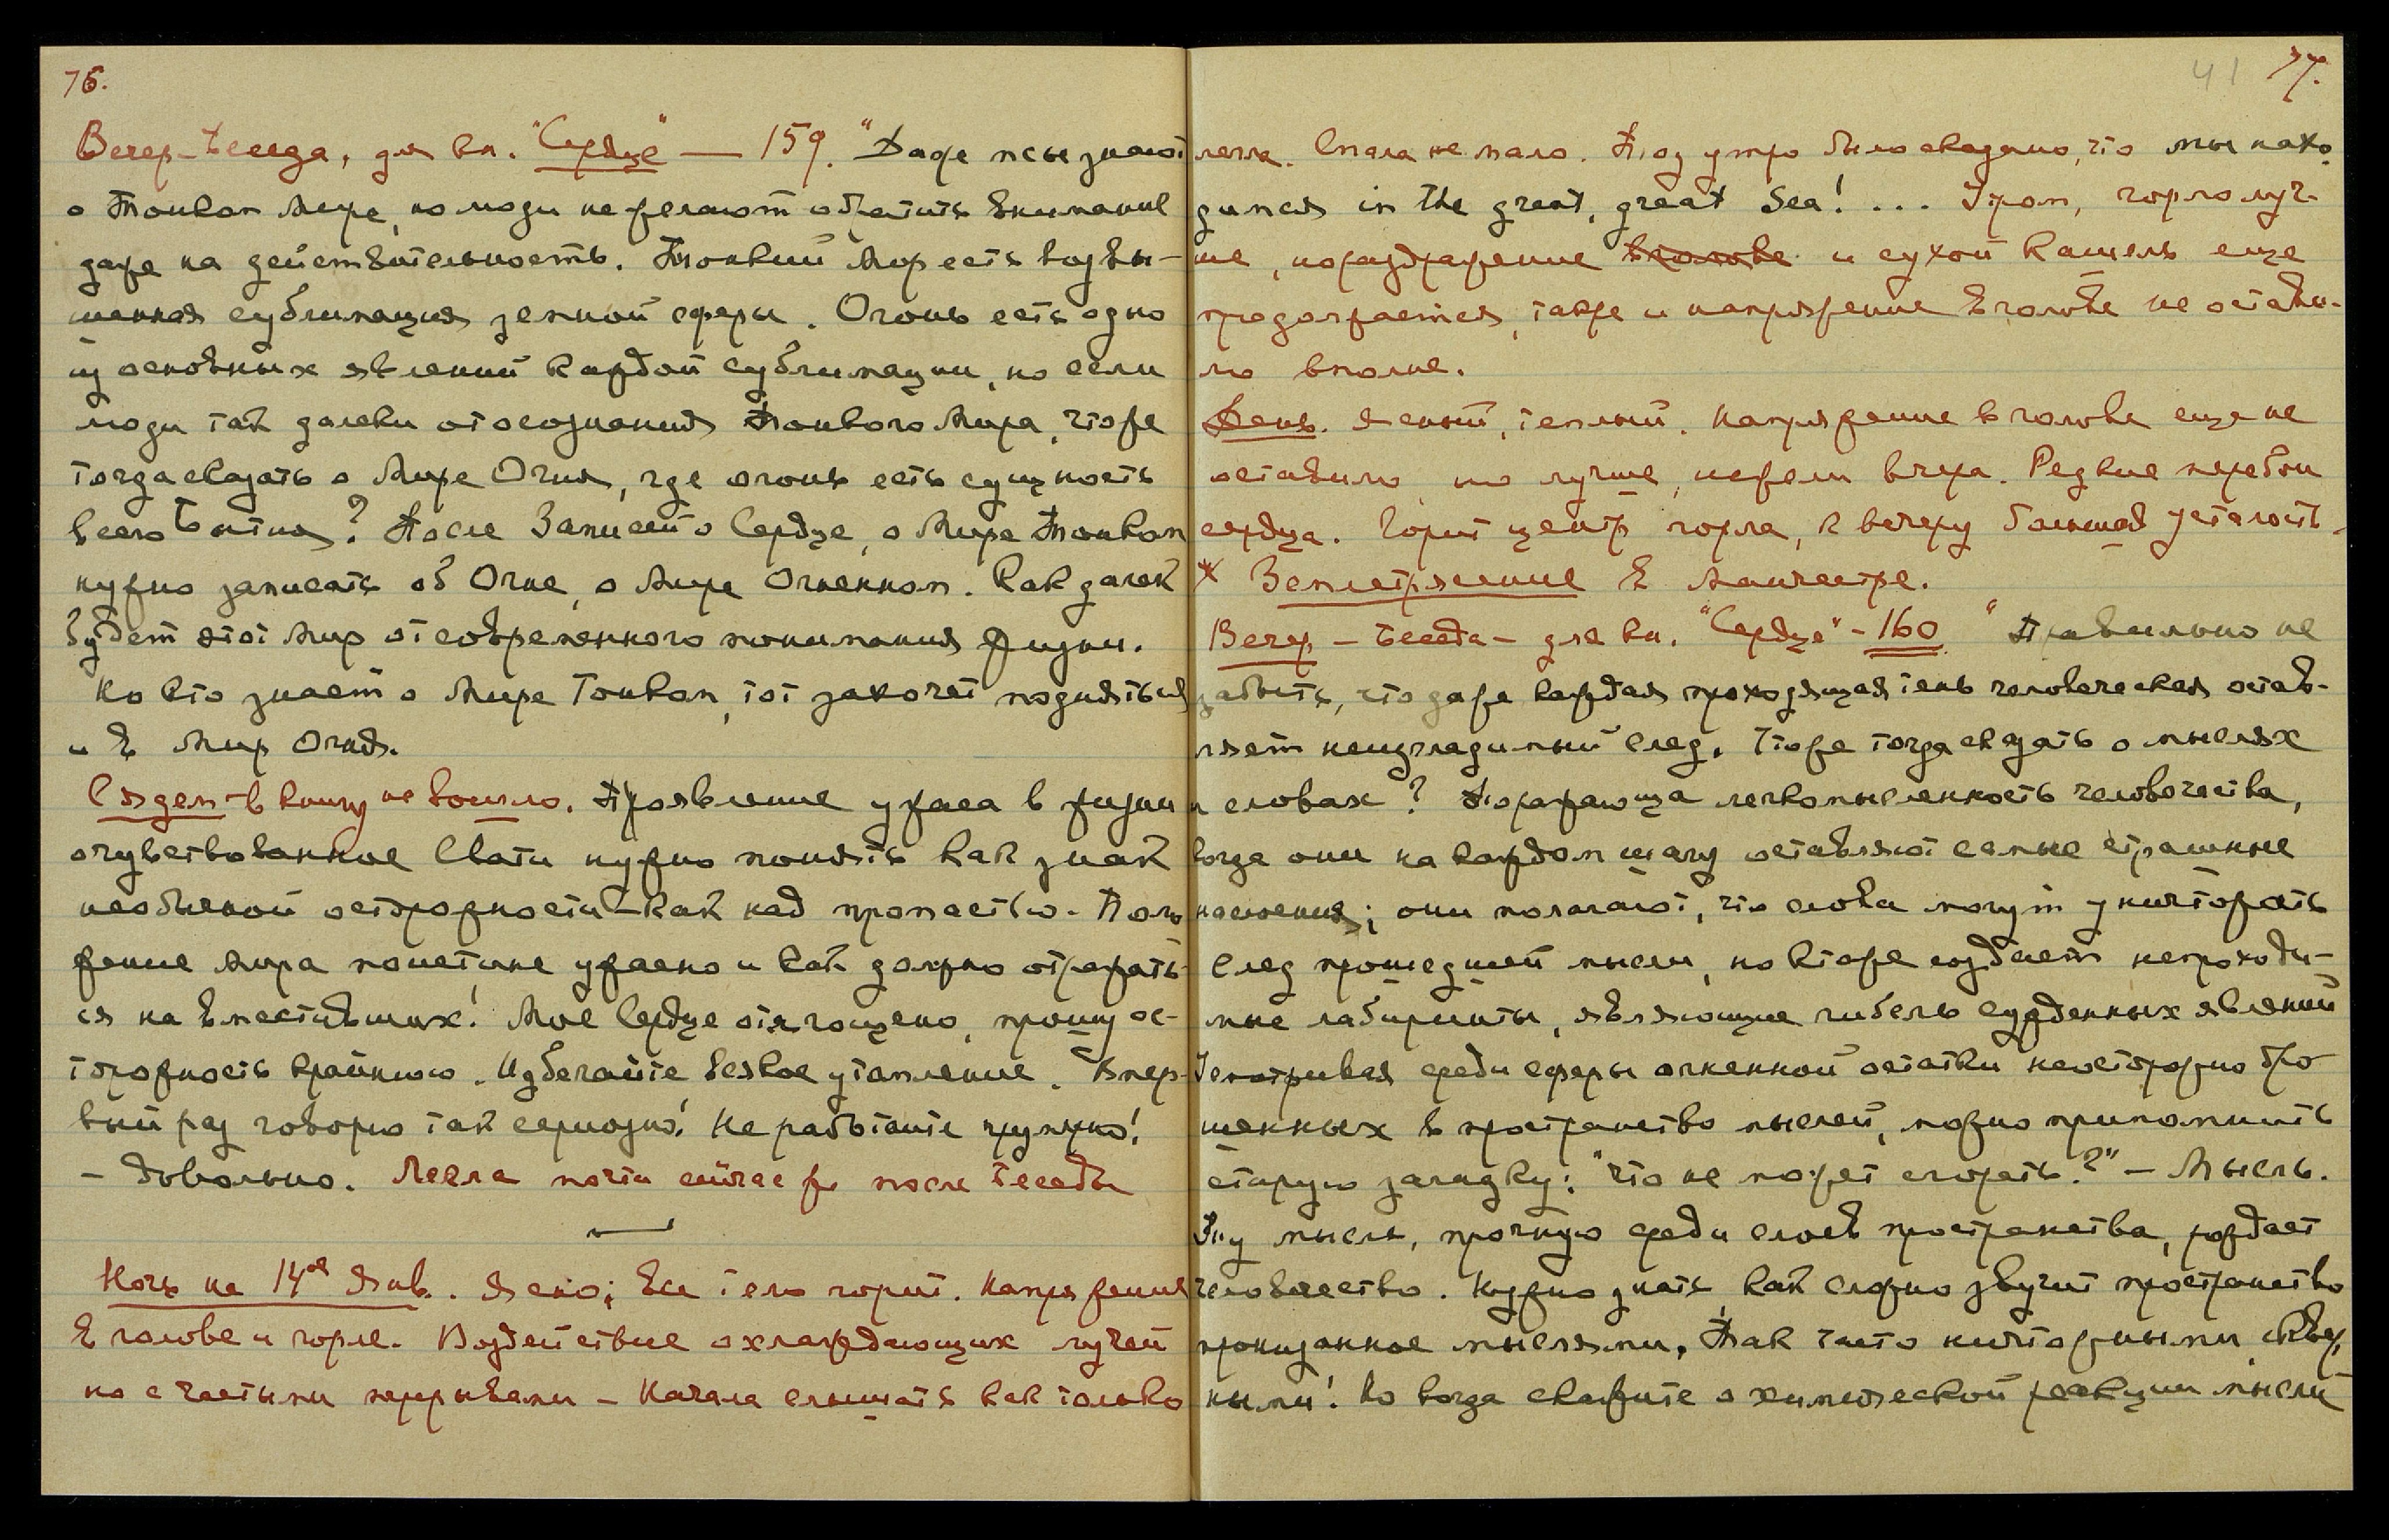 76.
Вечер-Беседа, для кн. "Сердце" — 159. "Даже псы знают
о Тонком Мире, но люди не желают обратить внимание
даже на действительность. Тонкий Мир есть возвы-
шенная сублимация земной сферы. Огонь есть одно
из основных явлений каждой сублимации, но если
люди так далеки от осознания Тонкого Мира, что же
тогда сказать о Мире Огня, где огонь есть сущность
всего Бытия? После Записей о Сердце, о Мире Тонком
нужно записать об Огне, о Мире Огненном. Как далек
будет этот Мир от современного понимания жизни.
Но кто знает о Мире Тонком, тот захочет подняться
и в Мир Огня.
Сядем - в книгу не вошло. Проявление ужаса в жизни
очувствованное Свати нужно понять как знак
необычной осторожности - как над пропастью. Поло
жение Мира поистине ужасно и как должно отражать-
ся на вместивших! Мое Сердце отягощено, прошу ос-
торожность крайнюю. Избегайте всякое утомление. Впер-
вый раз говорю так серьозно! Не работайте чрезмерно!
- Довольно. Легла почти сейчас же после Беседы
Ночь на 14ое Янв. . Ясно; Все тело горит. Напряжения
в голове и горле. Воздействие охлаждающих лучей
но с частыми перерывами - Начала слышать как только
41 77.
легла. Спала не мало. Под утро было сказано, что мы нахо-
димся in the great, great Sea! ... Утром, горло луч-
ше, но раздражение в голове и сухой кашель еще
продолжается, также и напряжение в голове не остави-
ло вполне.
День. Ясный, теплый. Напряжение в голове еще не
оставило, но лучше, нежели вчера. Редкие перебои
сердца. Горит центр горла, к вечеру большая усталость.
* Землетрясение в Манчестре.
Вечер - Беседа - для кн. "Сердце" - 160 "Правильно не
забыть, что даже каждая проходящая тень человеческая остав-
ляет неизгладимый след. Что же тогда сказать о мыслях
и словах? Поражающа легкомысленность человечества,
когда они на каждом шагу оставляют самые страшные
наслоения; они полагают, что слова могут уничтожать
след прошедшей мысли, но кто же создает непроходи-
мые лабиринты, являющие гибель сужденных явлений
Усматривая среди сферы огненной остатки неосторожно бро
шенных в пространство мыслей, можно припомнить
старую загадку: "что не может сгорать?" - Мысль.
Эту мысль, прочную среди слоев пространства, рождает
человечество. Нужно знать, как сложно звучит пространство
пронизанное мыслями, так часто ничтожными, сквер,
ными! Но когда скажите о химической реакции мысли